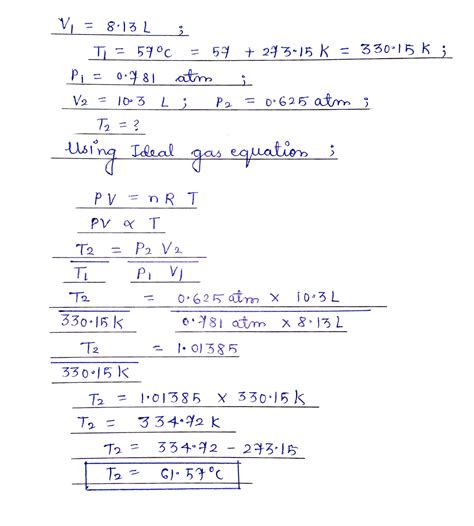 V1 = 8.13 L ;
T1 = 57°C = 57 + 273.15 K = 330.15 K ;
P1 = 0.781 atm ;
V2 = 10.3 L ; P2 = 0.625 atm ;
T2 = ?
Using Ideal gas equation ;
PV = nRT
PV ∝ T
T2 = P2 V2
T1 P1 V1
T2 = 0.625 atm × 10.3 L
330.15 K 0.781 atm × 8.13 L
T2 = 1.01385
330.15 K
T2 = 1.01385 × 330.15 K
T2 = 334.72 K
T2 = 334.72 - 273.15
T2 = 61.57°C